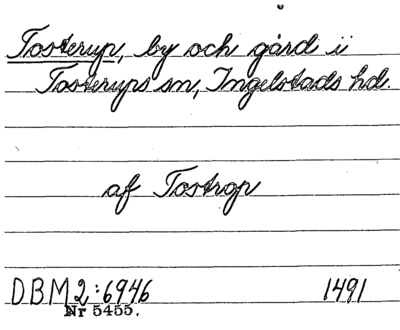 Tosterup, by och gård i
Tosterups sn, Ingelstads hd.
af Tostrop
DBM 2:6946 1491
Nr 5455.